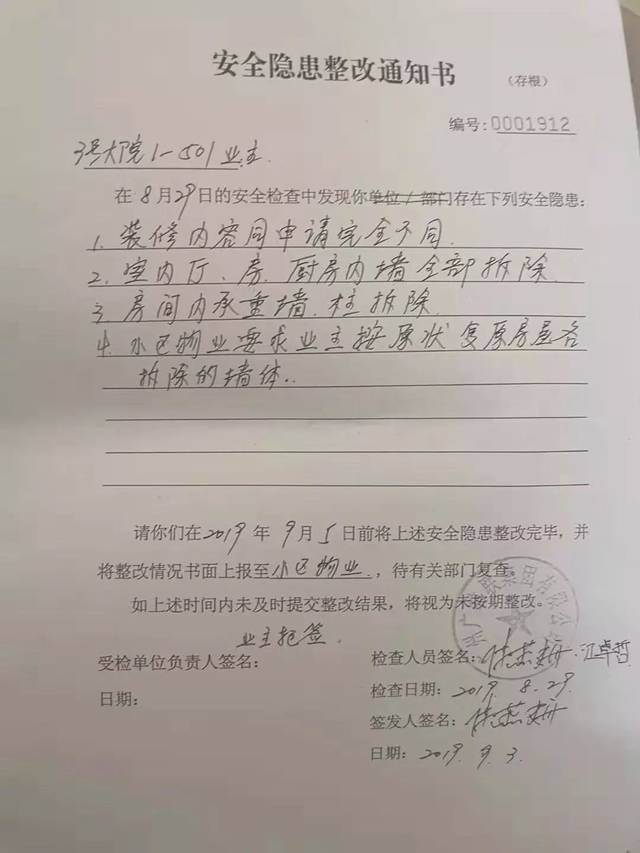 安全隐患整改通知书
(存根)
编号:0001912
3号大院1-501业主.
在8月29日的安全检查中发现你单位/部门存在下列安全隐患:
1. 装修内容同申请完全不同.
2. 室内厅、房、厨房内墙全部拆除
3. 房间内承重墙.柱拆除.
4. 小区物业要求业主按原状复原房屋各
拆除的墙体..
请你们在2019年9月5日前将上述安全隐患整改完毕,并
将整改情况书面上报至小区物业,待有关部门复查。
如上述时间内未及时提交整改结果,将视为未按期整改。
业主拒签
受检单位负责人签名:
检查人员签名: 江卓哲
日期:
检查日期: 2019.8.29
签发人签名:
日期: 2019.9.3